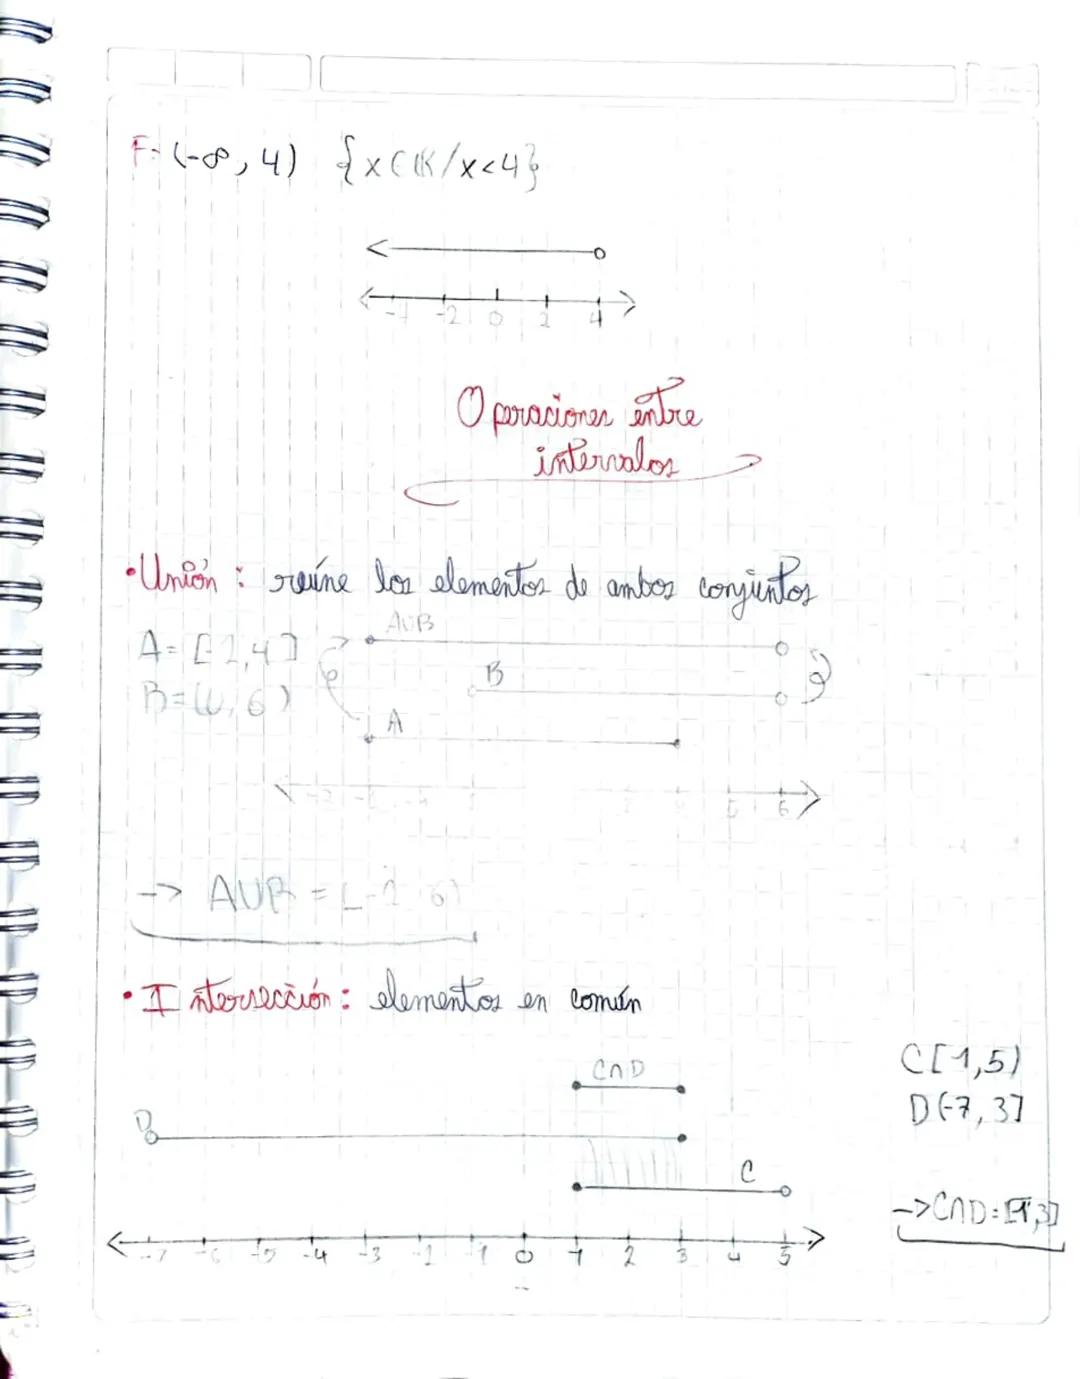 F= (-∞, 4) {x∈ℝ/x<4}
-2 0 2 4
Operaciones entre
intervalos
• Unión: reúne los elementos de ambos conjuntos
A∪B
A=[-2,4]
B
B=(0,6)
A
5 6
→ A∪B = [-2,6)
• Intersección: elementos en común
C∩D
C[1,5)
D
D(-7,3]
C
→C∩D=[1,3]
-7 -6 -5 -4 -3 -2 -1 0 1 2 3 4 5